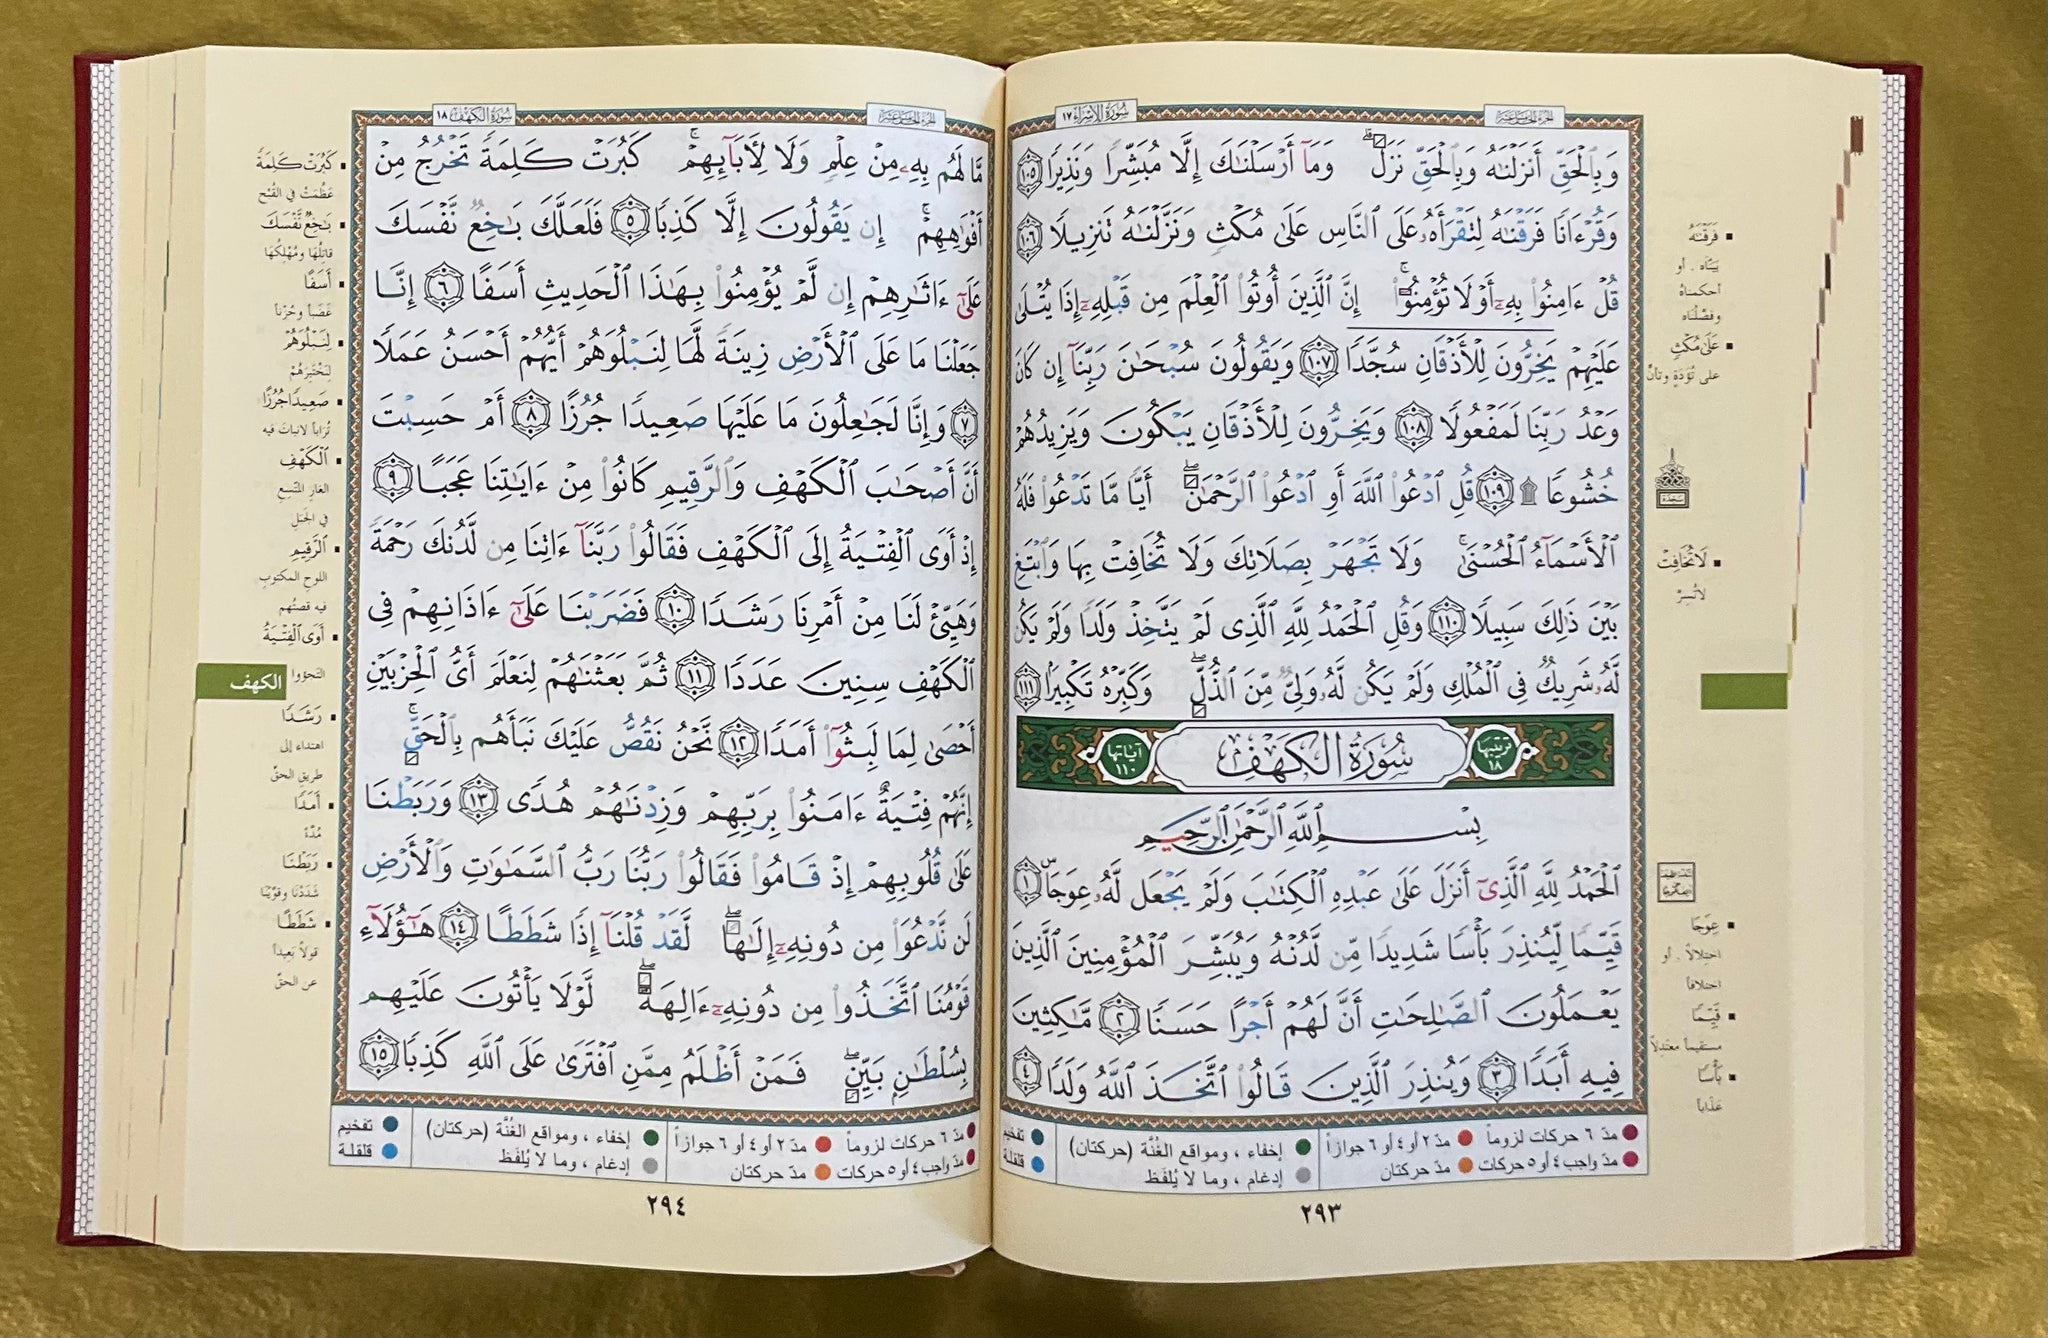 سُورَةُ الإِسْرَاء ١٧
الجزء الخامس عشر
وَبِٱلۡحَقِّ أَنزَلۡنَٰهُ وَبِٱلۡحَقِّ نَزَلَۗ وَمَآ أَرۡسَلۡنَٰكَ إِلَّا مُبَشِّرٗا وَنَذِيرٗا ١٠٥
وَقُرۡءَانٗا فَرَقۡنَٰهُ لِتَقۡرَأَهُۥ عَلَى ٱلنَّاسِ عَلَىٰ مُكۡثٖ وَنَزَّلۡنَٰهُ تَنزِيلٗا ١٠٦
قُلۡ ءَامِنُواْ بِهِۦٓ أَوۡ لَا تُؤۡمِنُوٓاْۚ إِنَّ ٱلَّذِينَ أُوتُواْ ٱلۡعِلۡمَ مِن قَبۡلِهِۦٓ إِذَا يُتۡلَىٰ
عَلَيۡهِمۡ يَخِرُّونَ لِلۡأَذۡقَانِۤ سُجَّدٗا ١٠٧ وَيَقُولُونَ سُبۡحَٰنَ رَبِّنَآ إِن كَانَ
وَعۡدُ رَبِّنَا لَمَفۡعُولٗا ١٠٨ وَيَخِرُّونَ لِلۡأَذۡقَانِ يَبۡكُونَ وَيَزِيدُهُمۡ
خُشُوعٗا ۩ ١٠٩ قُلِ ٱدۡعُواْ ٱللَّهَ أَوِ ٱدۡعُواْ ٱلرَّحۡمَٰنَۖ أَيّٗا مَّا تَدۡعُواْ فَلَهُ
ٱلۡأَسۡمَآءُ ٱلۡحُسۡنَىٰۚ وَلَا تَجۡهَرۡ بِصَلَاتِكَ وَلَا تُخَافِتۡ بِهَا وَٱبۡتَغِ
بَيۡنَ ذَٰلِكَ سَبِيلٗا ١١٠ وَقُلِ ٱلۡحَمۡدُ لِلَّهِ ٱلَّذِي لَمۡ يَتَّخِذۡ وَلَدٗا وَلَمۡ يَكُن
لَّهُۥ شَرِيكٞ فِي ٱلۡمُلۡكِ وَلَمۡ يَكُن لَّهُۥ وَلِيّٞ مِّنَ ٱلذُّلِّۖ وَكَبِّرۡهُ تَكۡبِيرَۢا ١١١
ترتيبها ١٨ سُورَةُ الكَهْفِ آياتها ١١٠
بِسۡمِ ٱللَّهِ ٱلرَّحۡمَٰنِ ٱلرَّحِيمِ
ٱلۡحَمۡدُ لِلَّهِ ٱلَّذِيٓ أَنزَلَ عَلَىٰ عَبۡدِهِ ٱلۡكِتَٰبَ وَلَمۡ يَجۡعَل لَّهُۥ عِوَجَاۜ ١
قَيِّمٗا لِّيُنذِرَ بَأۡسٗا شَدِيدٗا مِّن لَّدُنۡهُ وَيُبَشِّرَ ٱلۡمُؤۡمِنِينَ ٱلَّذِينَ
يَعۡمَلُونَ ٱلصَّٰلِحَٰتِ أَنَّ لَهُمۡ أَجۡرًا حَسَنٗا ٢ مَّٰكِثِينَ
فِيهِ أَبَدٗا ٣ وَيُنذِرَ ٱلَّذِينَ قَالُواْ ٱتَّخَذَ ٱللَّهُ وَلَدٗا ٤
فَرَقْنَاهُ
بيّنّاه . أو
أحكمناه
وفصّلناه
عَلَى مُكْثٍ
على تُؤَدَةٍ وتأنٍّ
سجدة
لَا تُخَافِتْ
لا تُسِرَّ
عِوَجًا
اختلالاً . أو
اختلافاً
قَيِّمًا
مستقيماً معتدلاً
بَأْسًا
عَذَاباً
مدّ ٦ حركات لزوماً مدّ ٢ أو ٤ أو ٦ جوازاً إخفاء ، ومواقع الغُنَّة (حركتان) تفخيم
مدّ واجب ٤ أو ٥ حركات مدّ حركتان إدغام ، وما لا يُلفَظ قلقلة
٢٩٣
الجزء الخامس عشر
سُورَةُ الكَهْف ١٨
مَّا لَهُم بِهِۦ مِنۡ عِلۡمٖ وَلَا لِأٓبَآئِهِمۡۚ كَبُرَتۡ كَلِمَةٗ تَخۡرُجُ مِنۡ
أَفۡوَٰهِهِمۡۚ إِن يَقُولُونَ إِلَّا كَذِبٗا ٥ فَلَعَلَّكَ بَٰخِعٞ نَّفۡسَكَ
عَلَىٰٓ ءَاثَٰرِهِمۡ إِن لَّمۡ يُؤۡمِنُواْ بِهَٰذَا ٱلۡحَدِيثِ أَسَفًا ٦ إِنَّا
جَعَلۡنَا مَا عَلَى ٱلۡأَرۡضِ زِينَةٗ لَّهَا لِنَبۡلُوَهُمۡ أَيُّهُمۡ أَحۡسَنُ عَمَلٗا
٧ وَإِنَّا لَجَٰعِلُونَ مَا عَلَيۡهَا صَعِيدٗا جُرُزًا ٨ أَمۡ حَسِبۡتَ
أَنَّ أَصۡحَٰبَ ٱلۡكَهۡفِ وَٱلرَّقِيمِ كَانُواْ مِنۡ ءَايَٰتِنَا عَجَبًا ٩
إِذۡ أَوَى ٱلۡفِتۡيَةُ إِلَى ٱلۡكَهۡفِ فَقَالُواْ رَبَّنَآ ءَاتِنَا مِن لَّدُنكَ رَحۡمَةٗ
وَهَيِّئۡ لَنَا مِنۡ أَمۡرِنَا رَشَدٗا ١٠ فَضَرَبۡنَا عَلَىٰٓ ءَاذَانِهِمۡ فِي
ٱلۡكَهۡفِ سِنِينَ عَدَدٗا ١١ ثُمَّ بَعَثۡنَٰهُمۡ لِنَعۡلَمَ أَيُّ ٱلۡحِزۡبَيۡنِ
أَحۡصَىٰ لِمَا لَبِثُوٓاْ أَمَدٗا ١٢ نَّحۡنُ نَقُصُّ عَلَيۡكَ نَبَأَهُم بِٱلۡحَقِّۚ
إِنَّهُمۡ فِتۡيَةٌ ءَامَنُواْ بِرَبِّهِمۡ وَزِدۡنَٰهُمۡ هُدٗى ١٣ وَرَبَطۡنَا
عَلَىٰ قُلُوبِهِمۡ إِذۡ قَامُواْ فَقَالُواْ رَبُّنَا رَبُّ ٱلسَّمَٰوَٰتِ وَٱلۡأَرۡضِ
لَن نَّدۡعُوَاْ مِن دُونِهِۦٓ إِلَٰهٗاۖ لَّقَدۡ قُلۡنَآ إِذٗا شَطَطًا ١٤ هَٰٓؤُلَآءِ
قَوۡمُنَا ٱتَّخَذُواْ مِن دُونِهِۦٓ ءَالِهَةٗۖ لَّوۡلَا يَأۡتُونَ عَلَيۡهِم
بِسُلۡطَٰنِۭ بَيِّنٖۖ فَمَنۡ أَظۡلَمُ مِمَّنِ ٱفۡتَرَىٰ عَلَى ٱللَّهِ كَذِبٗا ١٥
كَبُرَتْ كَلِمَةً
عَظُمَتْ في القُبْح
بَاخِعٌ نَّفْسَكَ
قاتِلُها ومُهْلِكُها
أَسَفًا
غَضَباً وحُزْناً
لِنَبْلُوَهُمْ
لِنَخْتَبِرَهُمْ
صَعِيدًا جُرُزًا
تُرَاباً لا نباتَ فيه
الْكَهْفِ
الغارِ المتّسِعِ
في الجَبَل
الرَّقِيمِ
اللوحِ المكتوبِ
فيه قصتُهم
أَوَى الْفِتْيَةُ
التَجَؤوا
الكهف
رَشَدًا
اهتداء إلى
طريقِ الحقّ
أَمَدًا
مُدَّةً
رَبَطْنَا
شَدَدْنا وقوّيْنا
شَطَطًا
قولاً بَعيداً
عن الحقّ
مدّ ٦ حركات لزوماً مدّ ٢ أو ٤ أو ٦ جوازاً إخفاء ، ومواقع الغُنَّة (حركتان) تفخيم
مدّ واجب ٤ أو ٥ حركات مدّ حركتان إدغام ، وما لا يُلفَظ قلقلة
٢٩٤